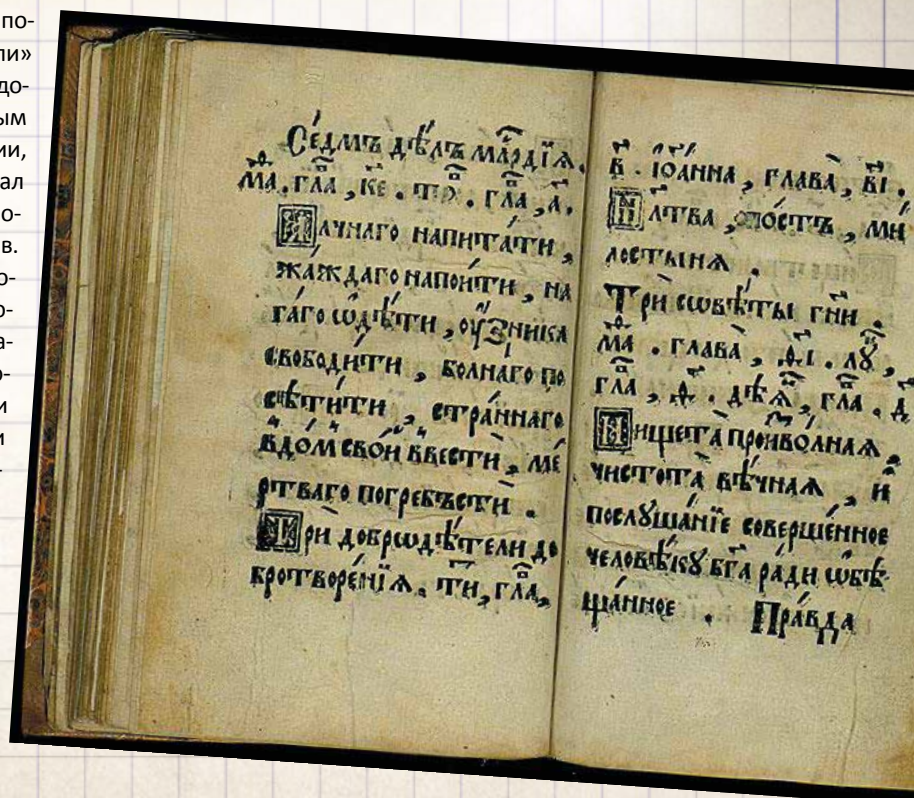 по-
ли»
до-
ым
ии,
ал
о-
в.
о-
о-
а-
о-
и
и
-
Се́дмъ дѣ́лъ мл҃рдїѧ.
Мѳ. гла҃, ке. гла҃, а҃.
Алчнаго напита́ти,
жа́ждаго напои́ти, на
га́го ѡдѣ́ти, оу҆́зника
свободи́ти, болна́го по
сѣти́ти, стра́ннаго
в̾до́м свои́ ввести́, ме́
ртваго погребъсти́.
Три́ добродѣ́тели до
бротворе́нїѧ. гла҃,
в҃. І҆ѡа́нна, глава̀, в҃і.
Мл҃тва, по́стъ, ми́
лостынѧ.
Три́ совѣ́ты гн҃и.
Мѳ. глава̀, ѳ҃і. лꙋ,
гла҃, ѳ҃. дѣѧ, гла҃. д҃
Нищета̀ прои҆зво́лнаѧ,
чистота̀ вѣ́чнаѧ, и҆
послꙋша́нїе соверше́нное
человѣ́кꙋ бг҃а ра́ди ѡ҆бѣ
ща́нное. Пра́вда